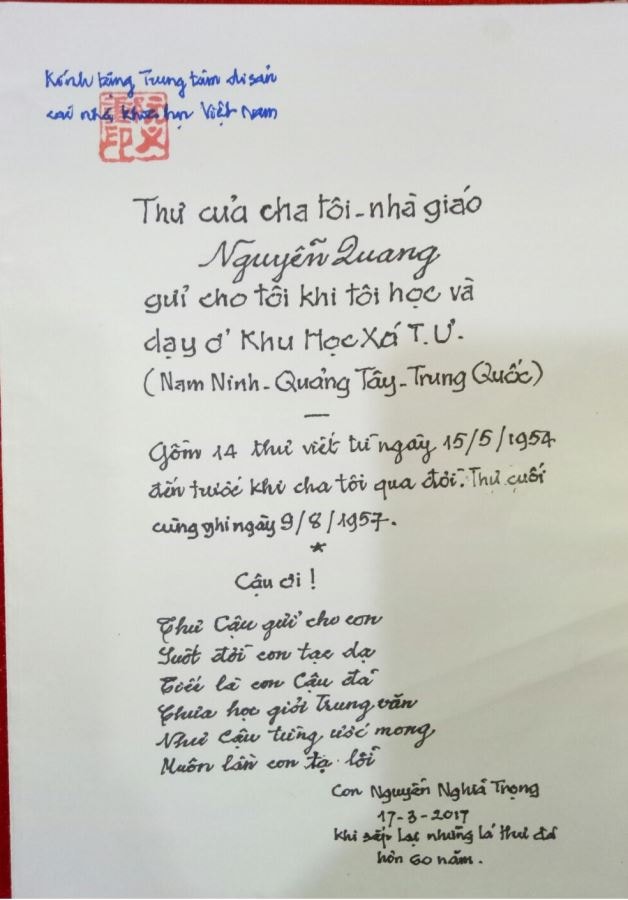 Kính tặng Trung tâm di sản
các nhà khoa học Việt Nam
阮义
重印
Thư của cha tôi - nhà giáo
Nguyễn Quang
gửi cho tôi khi tôi học và
dạy ở Khu Học Xá T.Ư.
(Nam Ninh - Quảng Tây - Trung Quốc)
Gồm 14 thư viết từ ngày 15/5/1954
đến trước khi cha tôi qua đời. Thư cuối
cùng ghi ngày 9/8/1957.
*
Cậu ơi!
Thư Cậu gửi cho con
Suốt đời con tạc dạ
Tiếc là con Cậu đã
Chưa học giỏi Trung văn
Như Cậu từng ước mong
Muôn lần con tạ lỗi
Con Nguyễn Nghĩa Trọng
17-3-2017
Khi sắp lại những lá thư đã
hơn 60 năm.